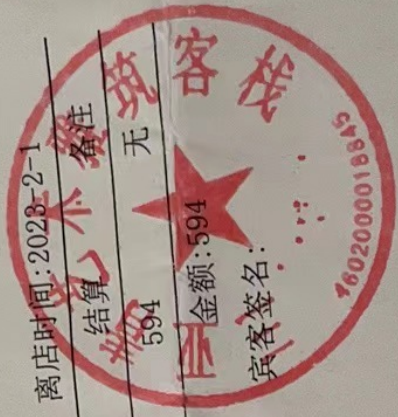 离店时间:2023-2-1
结算 备注
594 无
金额:594
宾客签名:
筑客栈
4602000018845